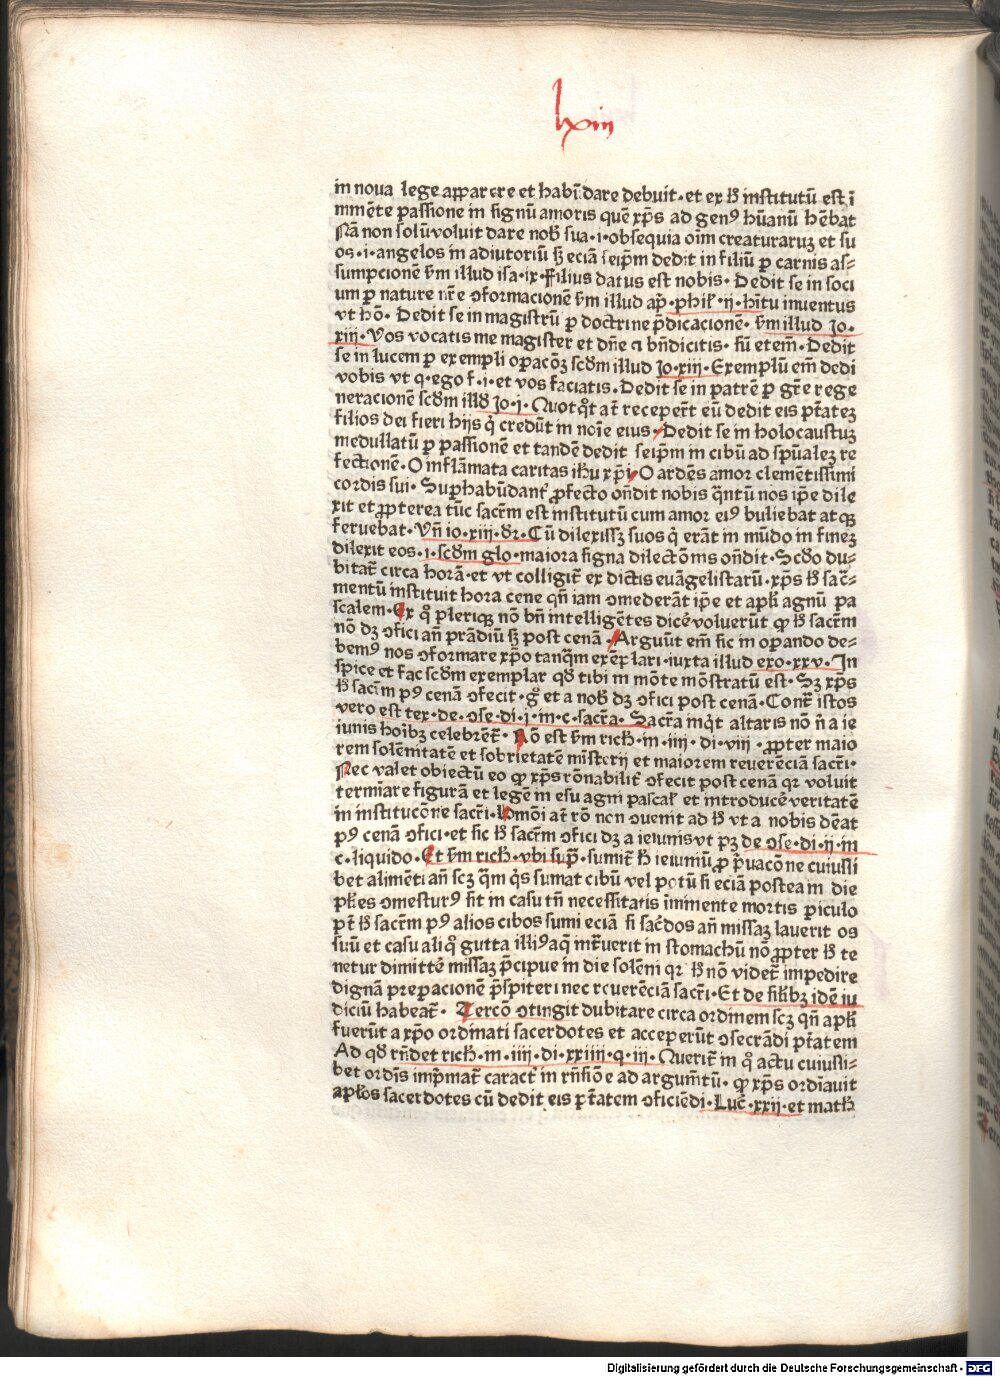 lxiii
in noua lege apparere et habūdare debuit·et ex ħ institutū est ī
mmēte passione in signū amoris quē xp̄s ad genꝰ hūanū hēbat
Nā non solū voluit dare nob̄ sua·i·obsequia oīm creaturaruꝫ et su
os·i·angelos in adiutoriū sꝫ eciā seip̄m dedit in filiū ꝑ carnis as⸗
sumpcionē ẜm illud isa·ix·Filius datus est nobis·Dedit se in soci
um ꝑ nature nr̄e ꝯformacionē ẜm illud ap̄·phil̓·ij·hītu inuentus
vt hō·Dedit se in magistrū ꝑ doctrine p̄dicacionē·ẜm illud Jo·
xiij·Vos vocatis me magister et dn̄e ⁊ bn̄dicitis·sū etem̄·Dedit
se in lucem ꝑ exempli oꝑacōꝫ scd̄m illud Jo·xiij·Exemplū em̄ dedi
vobis vt q·ego f·i·et vos faciatis·Dedit se in patrē ꝑ gr̄e rege
neracionē scd̄m illđ Jo·j·Quotqͦt at̄ receper̄t eū dedit eis ptāteꝫ
filios dei fieri hijs q̇ credūt in noīe eius·Dedit se in holocaustuꝫ
medullatū ꝑ passionē et tandē dedit seip̄m in cibū ad sp̄ualeꝫ re
fectionē·O inflāmata caritas ihū xp̄i·O ardēs amor clemētissimi
cordis sui·Suꝑhabūdant̄ ꝓfecto on̄dit nobis q̄ntū nos ip̄e dile
xit et ꝓpterea tūc sacr̄m est institutū cum amor eiꝰ buliebat atqꝫ
feruebat·Vn̄ io·xiij·dr̄·Cū dilexissꝫ suos q̇ erāt in mūdo in fineꝫ
dilexit eos·i·scd̄m glo·maiora signa dilectōnis on̄dit·Scđo du⸗
bitat̄ circa horā·et vt colligit̄ ex dictis euāgelistarū·xp̄s ħ sac̄⸗
mentū instituit hora cene qn̄ iam ꝯmederāt ip̄e et apl̄i agnū pa
scalem·Ex qͦ pleriqꝫ nō bn̄ intelligētes dicē voluerūt ꝙ ħ sacr̄m
nō dꝫ ꝯfici an̄ prādiū sꝫ post cenā·Arguūt em̄ sic in oꝑando de⸗
bemꝰ nos ꝯformare xp̄o tanq̄m exēplari·iuxta illud exo·xxv·In
spice et fac scd̄m exemplar qđ tibi in mōte mōstratū est·Sꝫ xp̄s
ħ sacr̄m pꝰ cenā ꝯfecit·gͦ et a nob̄ dꝫ ꝯfici post cenā·Contͬ istos
vero est tex·de·ꝯse·di·j·in·c·sacr̄a·Sacr̄a inq̇t altaris nō n̄ a ie
iunis hoībꝫ celebrēt̄·Rō est ẜm rich·in·iiij·di·viij·ꝓpter maio
rem solēnitatē et sobrietatē misterij et maiorem reuerēciā sacr̄i·
Nec valet obiectū eo ꝙ xp̄s rōnabilit̄ ꝯfecit post cenā qꝛ voluit
termīare figurā et legē in esu agni pascal̓ et introducē veritatē
in institucōne sacr̄i·huiꝰmōi at̄ rō non ꝯuenit ad ħ vt a nobis dēat
pꝰ cenā ꝯfici·et sic ħ sacr̄m ꝯfici dꝫ a ieiunis vt pꝫ de ꝯse·di·ij·in
c·liquido·Et ẜm rich·vbi sup̄·sumit̄ h̄ ieiuniū ꝓ p̄uacōne cuiussi
bet alimēti an̄ scꝫ q̄m q̇s sumat cibū vel potū si eciā postea in die
pl̄es ꝯmesturꝰ sit in casu tn̄ necessitatis īminente mortis ꝑiculo
pt̄ ħ sacr̄m pꝰ alios cibos sumi eciā si sac̄dos an̄ missaꝫ lauerit os
suū et casu aliqͦ gutta illiꝰ aq̄ int̄uerit in stomachū nō ꝓpter ħ te
netur dimittē missaꝫ p̄cipue in die solēni qꝛ ħ nō videt̄ impedire
dignā preꝑacionē p̄spiteri nec reuerēciā sacr̄i·Et de sil̓ibꝫ idē iu
diciū habeat̄·Tercō ꝯtingit dubitare circa ordinem scꝫ qn̄ apl̄i
fuerūt a xp̄o ordinati sacerdotes et acceperūt ꝯsecrādi ptātem
Ad qđ rn̄det rich·in·iiij·di·xxiiij·q·iij·Querit̄ in qͦ actu cuiussi⸗
bet ordīs imp̄mat̄ caract̄ in rn̄siōe ad argum̄tū·ꝙ xp̄s ordīauit
apl̄os sacerdotes cū dedit eis ptātem ꝯficiēdi·Luc̄·xxij·et math̄
Digitalisierung gefördert durch die Deutsche Forschungsgemeinschaft - DFG